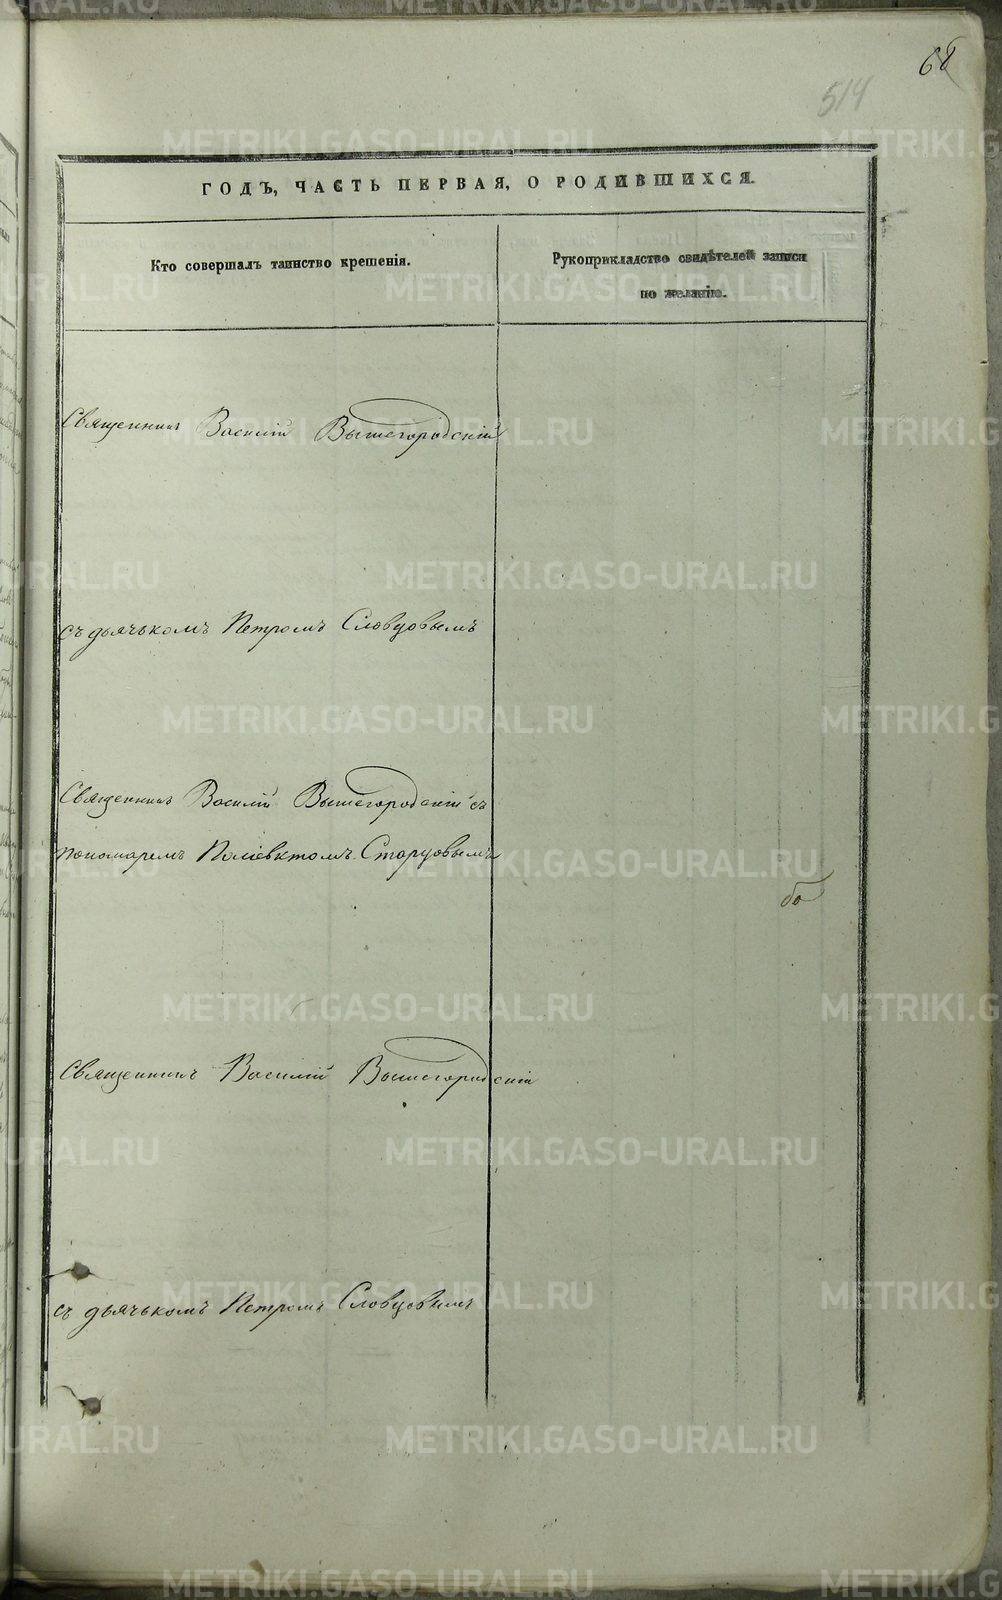 514
ГОДЪ, ЧАСТЬ ПЕРВАЯ, О РОДИВШИХСЯ.
Кто совершалъ таинство крещенія.
Рукоприкладство свидѣтелей записи
по желанію.
Священникъ Василій Вышегородскій
съ дьячькомъ Петромъ Словцовымъ
Священникъ Василій Вышегородскій съ
пономаремъ Полієвктомъ Старцовымъ
Священникъ Василій Вышегородскій
съ дьячькомъ Петромъ Словцовымъ
METRIKI.GASO-URAL.RU